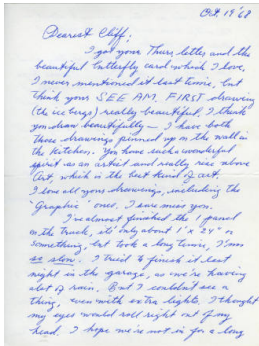 Oct. 19 '68
Dearest Cliff,
I got your Thurs letter and the
beautiful butterfly card which I love,
I never mentioned it last time, but
think your SEE AM. FIRST drawing
(the ice bergs) really beautiful, I think
you draw beautifully — I have both
those drawings pinned up on the wall in
the kitchen. You have such a wonderful
spirit as an artist and really rise above
Art, which is the best kind of art.
I love all your drawings, including the
"Graphic" ones. I sure miss you.
I've almost finished the 1 panel
on the truck, it's only about 1' x 2 1/4' or
something, but took a long time, I'm
so slow. I tried to finish it last
night in the garage, as we're having
alot of rain. But I couldn't see a
thing, even with extra lights. I thought
my eyes would roll right out of my
head. I hope we're not in for a long